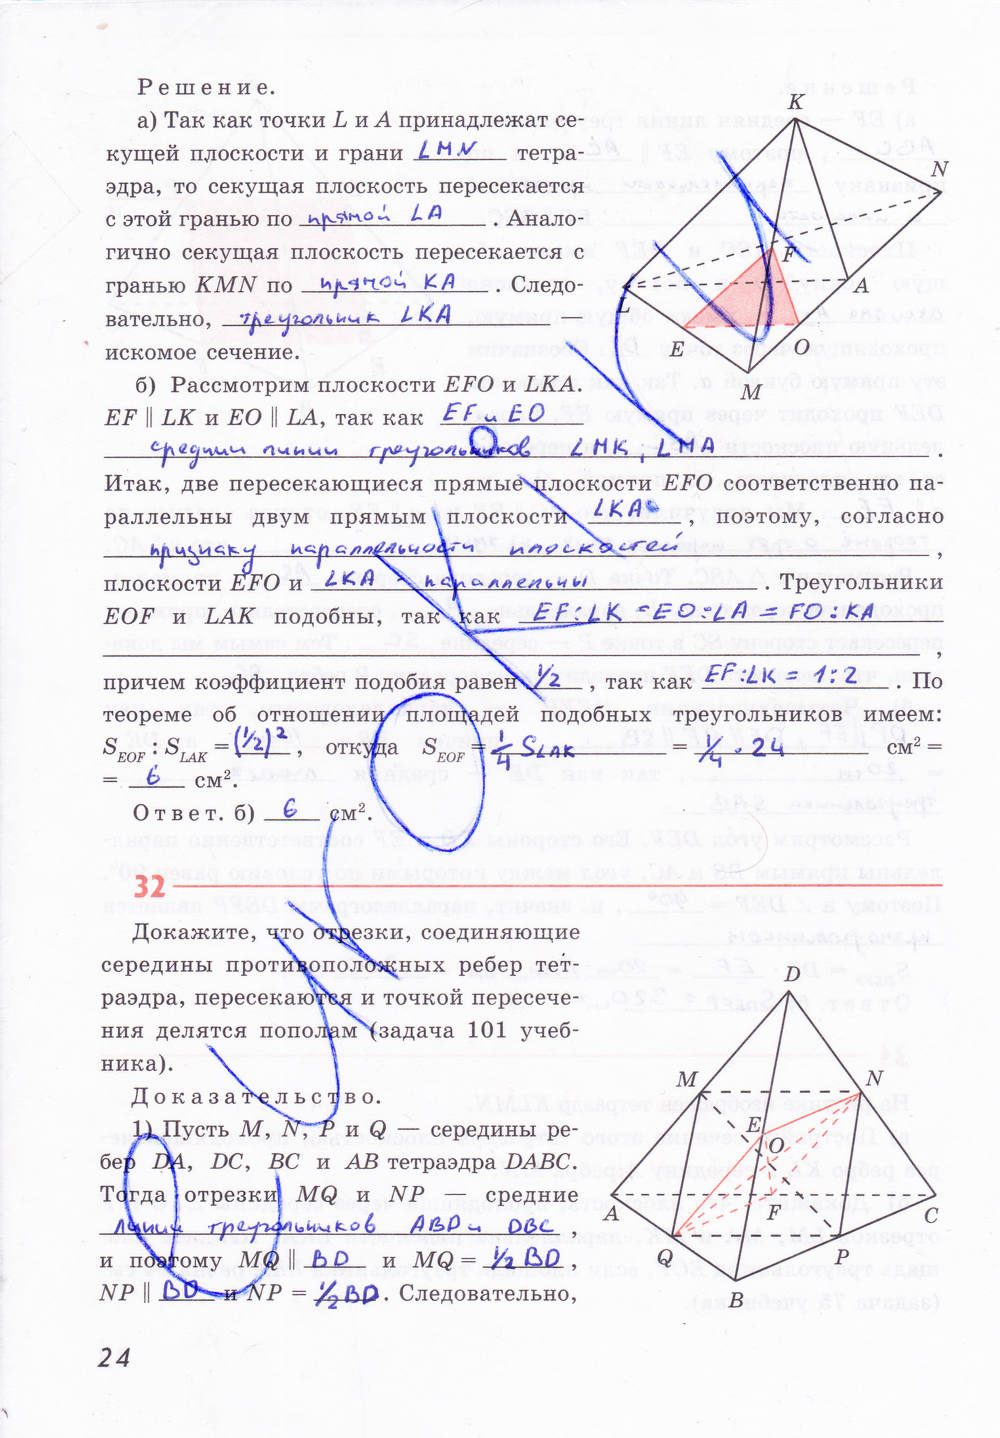 Решение.
а) Так как точки L и A принадлежат се-
кущей плоскости и грани LMN тетра-
эдра, то секущая плоскость пересекается
с этой гранью по прямой LA . Анало-
гично секущая плоскость пересекается с
гранью KMN по прямой KA . Следо-
вательно, треугольник LKA —
искомое сечение.
K
N
F
A
L
E
O
M
б) Рассмотрим плоскости EFO и LKA.
EF || LK и EO || LA, так как EF и EO
средние линии треугольников LMK, LMA .
Итак, две пересекающиеся прямые плоскости EFO соответственно па-
раллельны двум прямым плоскости LKA , поэтому, согласно
признаку параллельности плоскостей ,
плоскости EFO и LKA параллельны . Треугольники
EOF и LAK подобны, так как EF:LK = EO:LA = FO:KA
,
причем коэффициент подобия равен 1/2 , так как EF:LK = 1:2 . По
теореме об отношении площадей подобных треугольников имеем:
S_EOF : S_LAK = (1/2)² , откуда S_EOF = 1/4 S_LAK = 1/4 · 24 см² =
= 6 см².
Ответ. б) 6 см².
32
Докажите, что отрезки, соединяющие
середины противоположных ребер тет-
раэдра, пересекаются и точкой пересече-
ния делятся пополам (задача 101 учеб-
ника).
Доказательство.
1) Пусть M, N, P и Q — середины ре-
бер DA, DC, BC и AB тетраэдра DABC.
Тогда отрезки MQ и NP — средние
линии треугольников ABD и DBC
и поэтому MQ || BD и MQ = 1/2 BD ,
NP || BD и NP = 1/2 BD . Следовательно,
D
M
N
E
O
A
F
C
Q
P
B
24